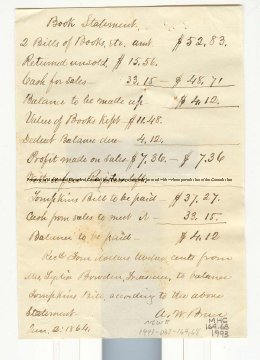 Book Statement.
2 Bills of Books, etc. amt $52.83.
Returned unsold, $15.56.
Cash for sales — 33.15 — $48.71
Balance to be made up $4.12.
Value of Books Kept $11.48.
Deduct Balance due 4.12.
Profit made on sales $7.36 — $7.36
Tompkins Bill to be paid — $37.27.
Cash from sales to meet it — 33.15.
Balance to be paid — $4.12
Recd four dollars twelve cents from
Mrs Lydia Bowden, Treasurer, to balance
Tompkins Bill according to the above
Statement.
Jan. 2. 1864.
MHS
169.68
1993